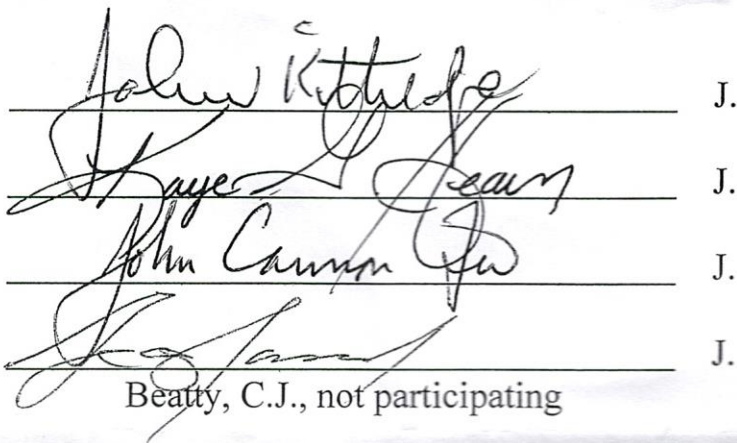 John Kittredge J.
Kaye G. Hearn J.
John Cannon Few J.
J.
Beatty, C.J., not participating